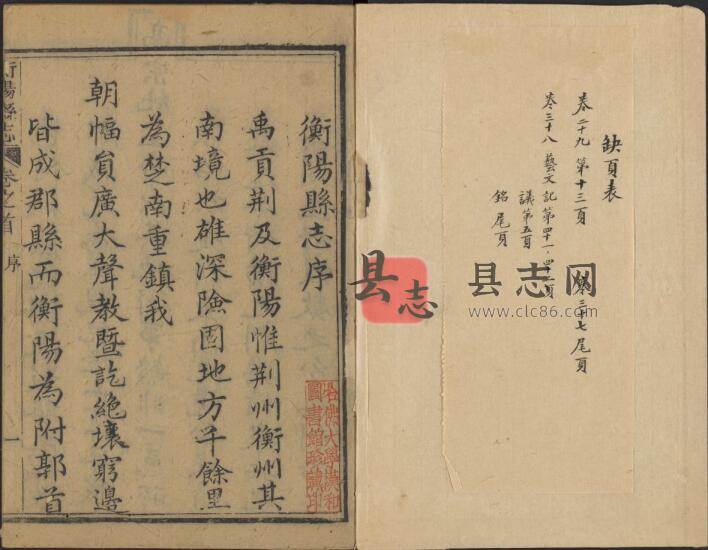 缺頁表
卷二十九 第十三頁
卷三十七尾頁
卷三十八 藝文記第四十一、四十二頁
議第五頁
銘尾頁
县志
县志网
www.clc86.com
衡陽縣志序
禹貢荆及衡陽惟荆州衡州其
南境也雄深險固地方千餘里
為楚南重鎮我
朝幅負廣大聲教暨訖絶壤窮邊
皆成郡縣而衡陽為附郭首
衡陽縣志 卷之首 序 一
哈佛大學漢和
圖書館珍藏印